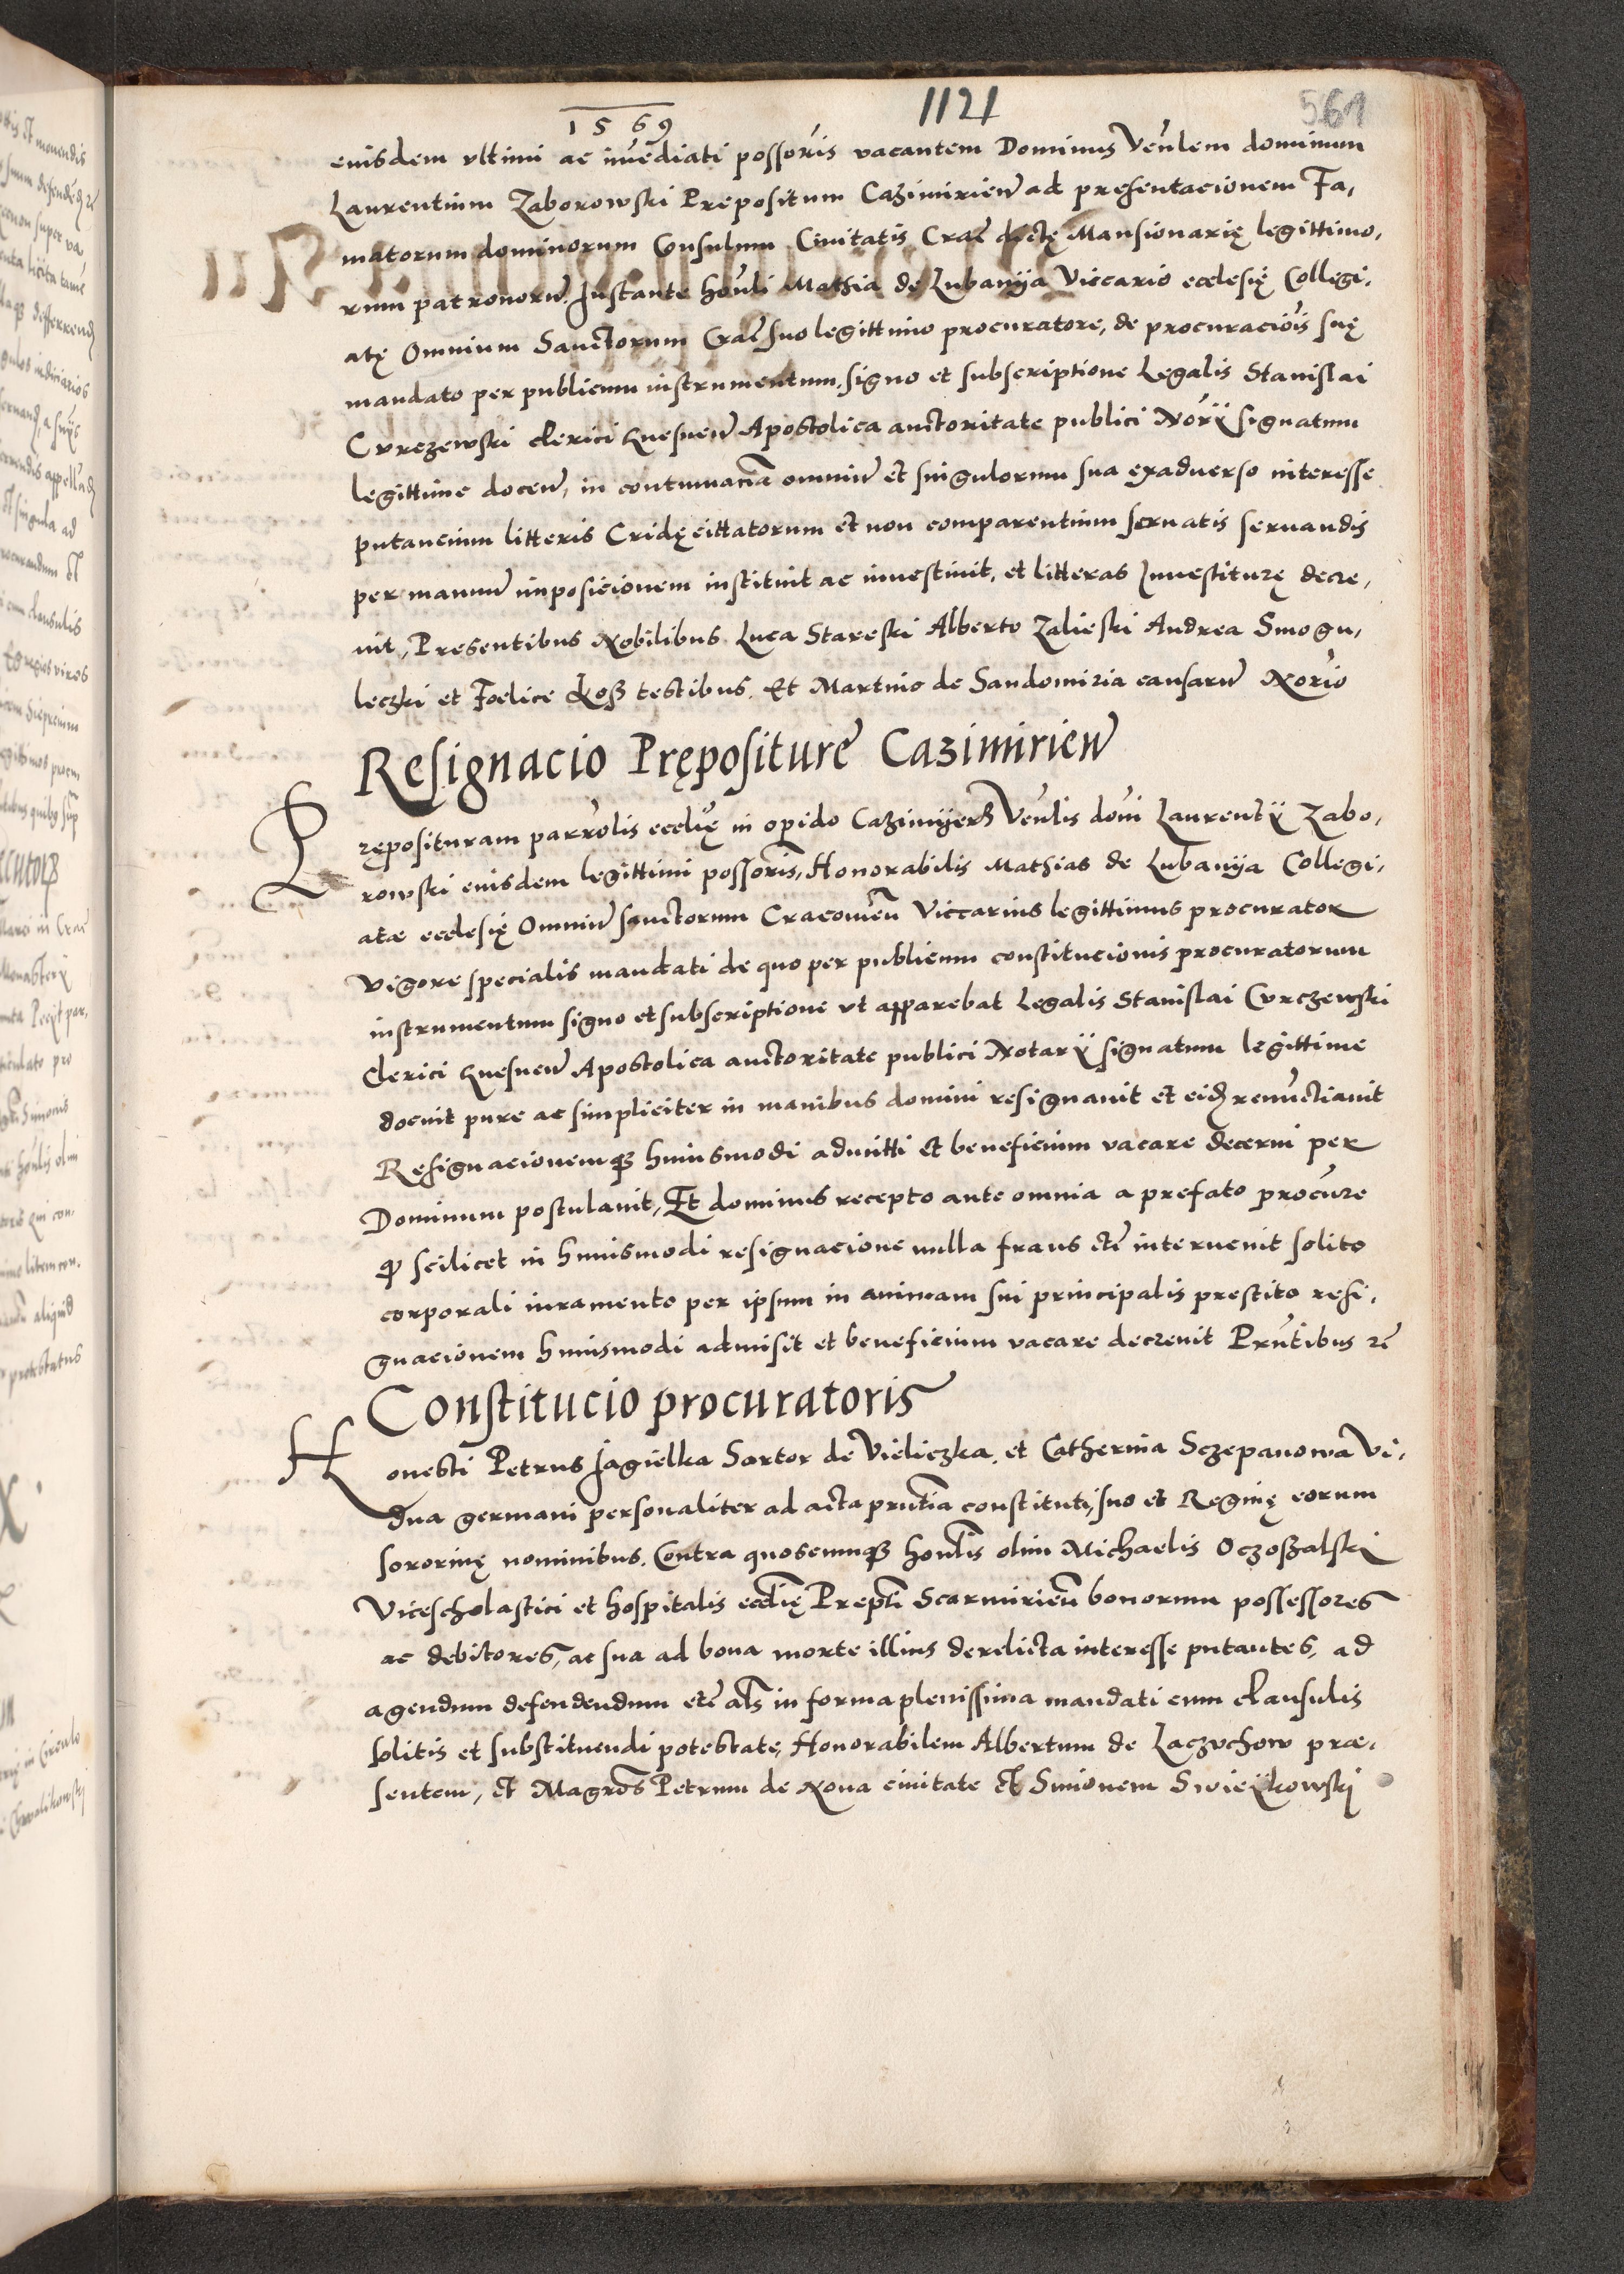 1569
1121
561
eiusdem ultimi ac imediati possoris vacantem Dominus Venlem dominum
Laurentium Zaborowski Prepositum Cazimirien ad presentacionem Fa,
matorum dominorum Consulum Civitatis Crac dictę Mansionarię legittimo,
rum patronoru. Instante honli Mathia de Lubanÿa Viccario ecclesię Collegi,
atę Omnium Sanctorum Crac suo legittimo procuratore, de procuracionis suę
mandato per publicum instrumentum, signo et subscriptione Legalis Stanislai
Curczewski clerici Gnesnen Apostolica auctoritate publici Norÿ signatum
legittime docen, in contumacia omniu et singulorum sua exadverso interesse
putancium litteris Cridę cittatorum et non comparentium servatis servandis
per manuu imposicionem instituit ac investivit, et litteras Investiturę decre,
vit, Presentibus Nobilibus Luca Stareski Alberto Zalieski Andrea Smogu,
leczki et Foelice Łoß testibus. Et Martino de Sandomiria causaru Norio
Resignacio Prępositure Cazimirien
Pręposituram parrolis ecclię in opido Cazimÿers Venlis domi Laurentÿ Zabo,
rowski eiusdem legittimi possoris, Honorabilis Mathias de Lubanÿa Collegi,
atæ ecclesię Omniu sanctorum Cracovien Viccarius legittimus procurator
vigore specialis mandati de quo per publicum constitucionis procuratorum
instrumentum signo et subscriptione ut apparebat Legalis Stanislai Curczewski
Clerici Gnesnen Apostolica auctoritate publici Notarÿ signatum legittime
docuit pure ac simpliciter in manibus domini resignavit et eid renuctiavit
Resignacionemq huiusmodi admitti et beneficium vacare decerni per
Dominum postulavit, Et dominus recepto ante omnia a prefato procure
q scilicet in huiusmodi resignacione nulla fraus etc intervenit solito
corporali iuramento per ipsum in animam sui principalis prestito resi,
gnacionem huiusmodi admisit et beneficium vacare decrevit Prntibus rc
Constitucio procuratoris
Honesti Petrus Jagielka Sartor de Vieliczka, et Catherina Sczepanowa Vi,
dua germani personaliter ad acta prntia constituti, suo et Reginę eorum
sororinę nominibus. Contra quoscumq honlis olim Michaelis Oczoßalski
Vicescholastici et hospitalis ecclię Prepti Scarmirien bonorum possessores
ac debitores, ac sua ad bona morte illius derelicta interesse putantes, ad
agendum defendendum etc als in forma plenissima mandati cum clausulis
solitis et substituendi potestate, Honorabilem Albertum de Laczuchow præ,
sentem, et Magros Petrum de Nova civitate et Simonem Swieÿkowski